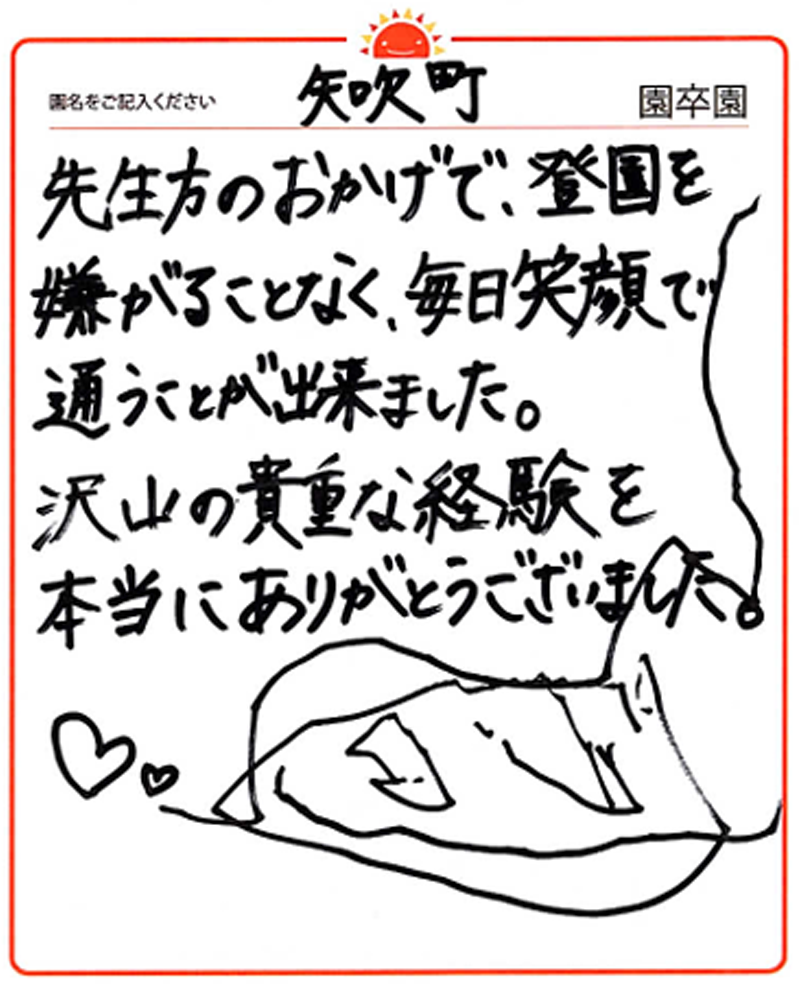 園名をご記入ください 矢吹町 園卒園
先生方のおかげで、登園を
嫌がることなく、毎日笑顔で
通うことが出来ました。
沢山の貴重な経験を
本当にありがとうございました。